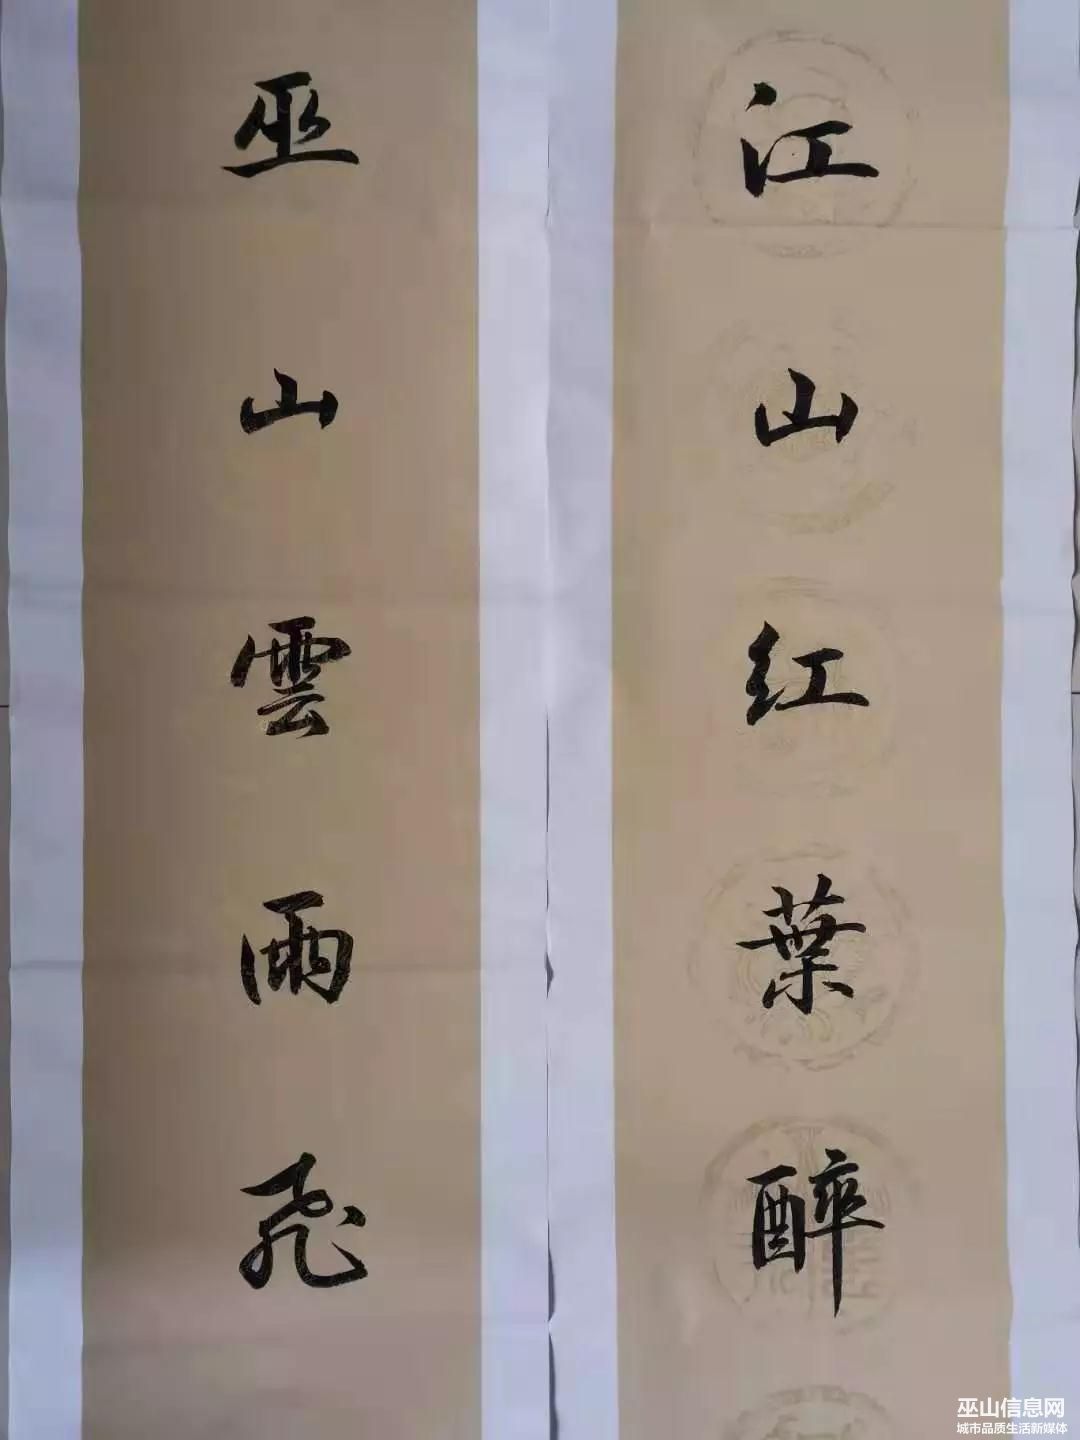 江山红葉醉
巫山雲雨飛
巫山信息网
城市品质生活新媒体